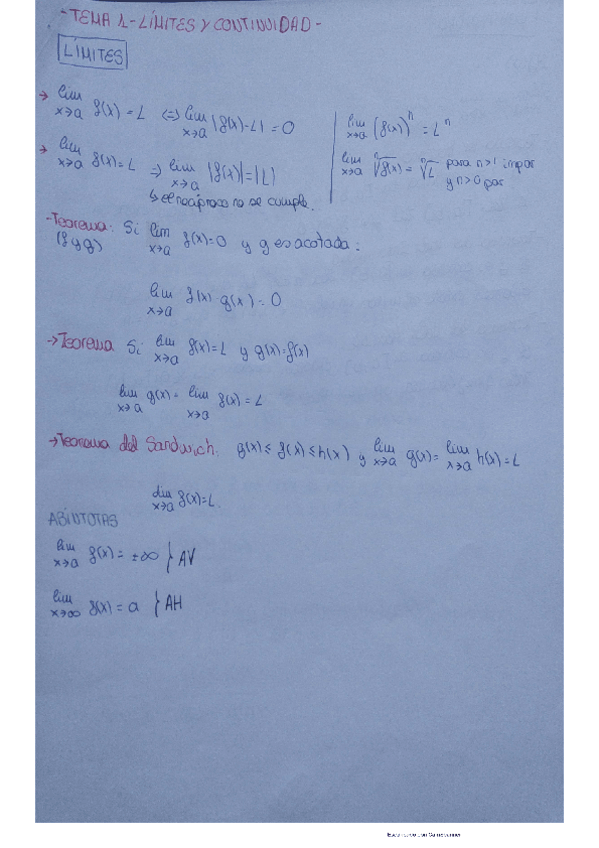 - TEMA 1 - LÍMITES Y CONTINUIDAD -
LÍMITES
→ lim x→a f(x) = L ⇔ lim x→a |f(x)-L| = 0
→ lim x→a f(x) = L ⇒ lim x→a |f(x)| = |L|
↳ el recíproco no se cumple.
lim x→a (f(x))^n = L^n
lim x→a ⁿ√f(x) = ⁿ√L para n>1 impar
y n>0 par
- Teorema: Si lim x→a f(x) = 0 y g es acotada:
(f y g)
lim x→a f(x) g(x) = 0
→ Teorema Si lim x→a f(x) = L y g(x) = f(x)
lim x→a g(x) = lim x→a f(x) = L
→ Teorema del Sandwich: g(x) ≤ f(x) ≤ h(x) y lim x→a g(x) = lim x→a h(x) = L
lim x→a f(x) = L.
ASÍNTOTAS
lim x→a f(x) = ±∞ } AV
lim x→∞ f(x) = a } AH
Escaneado con CamScanner